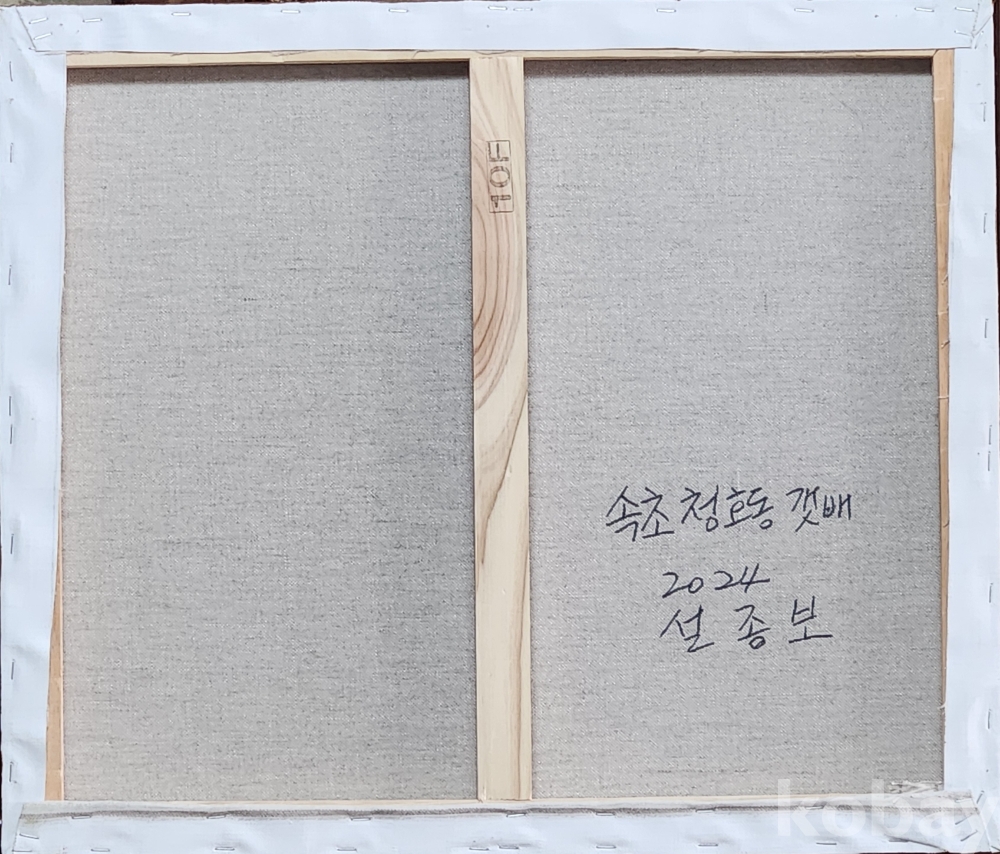 10F
속초 청호동 갯배
2024
설종보
kobay